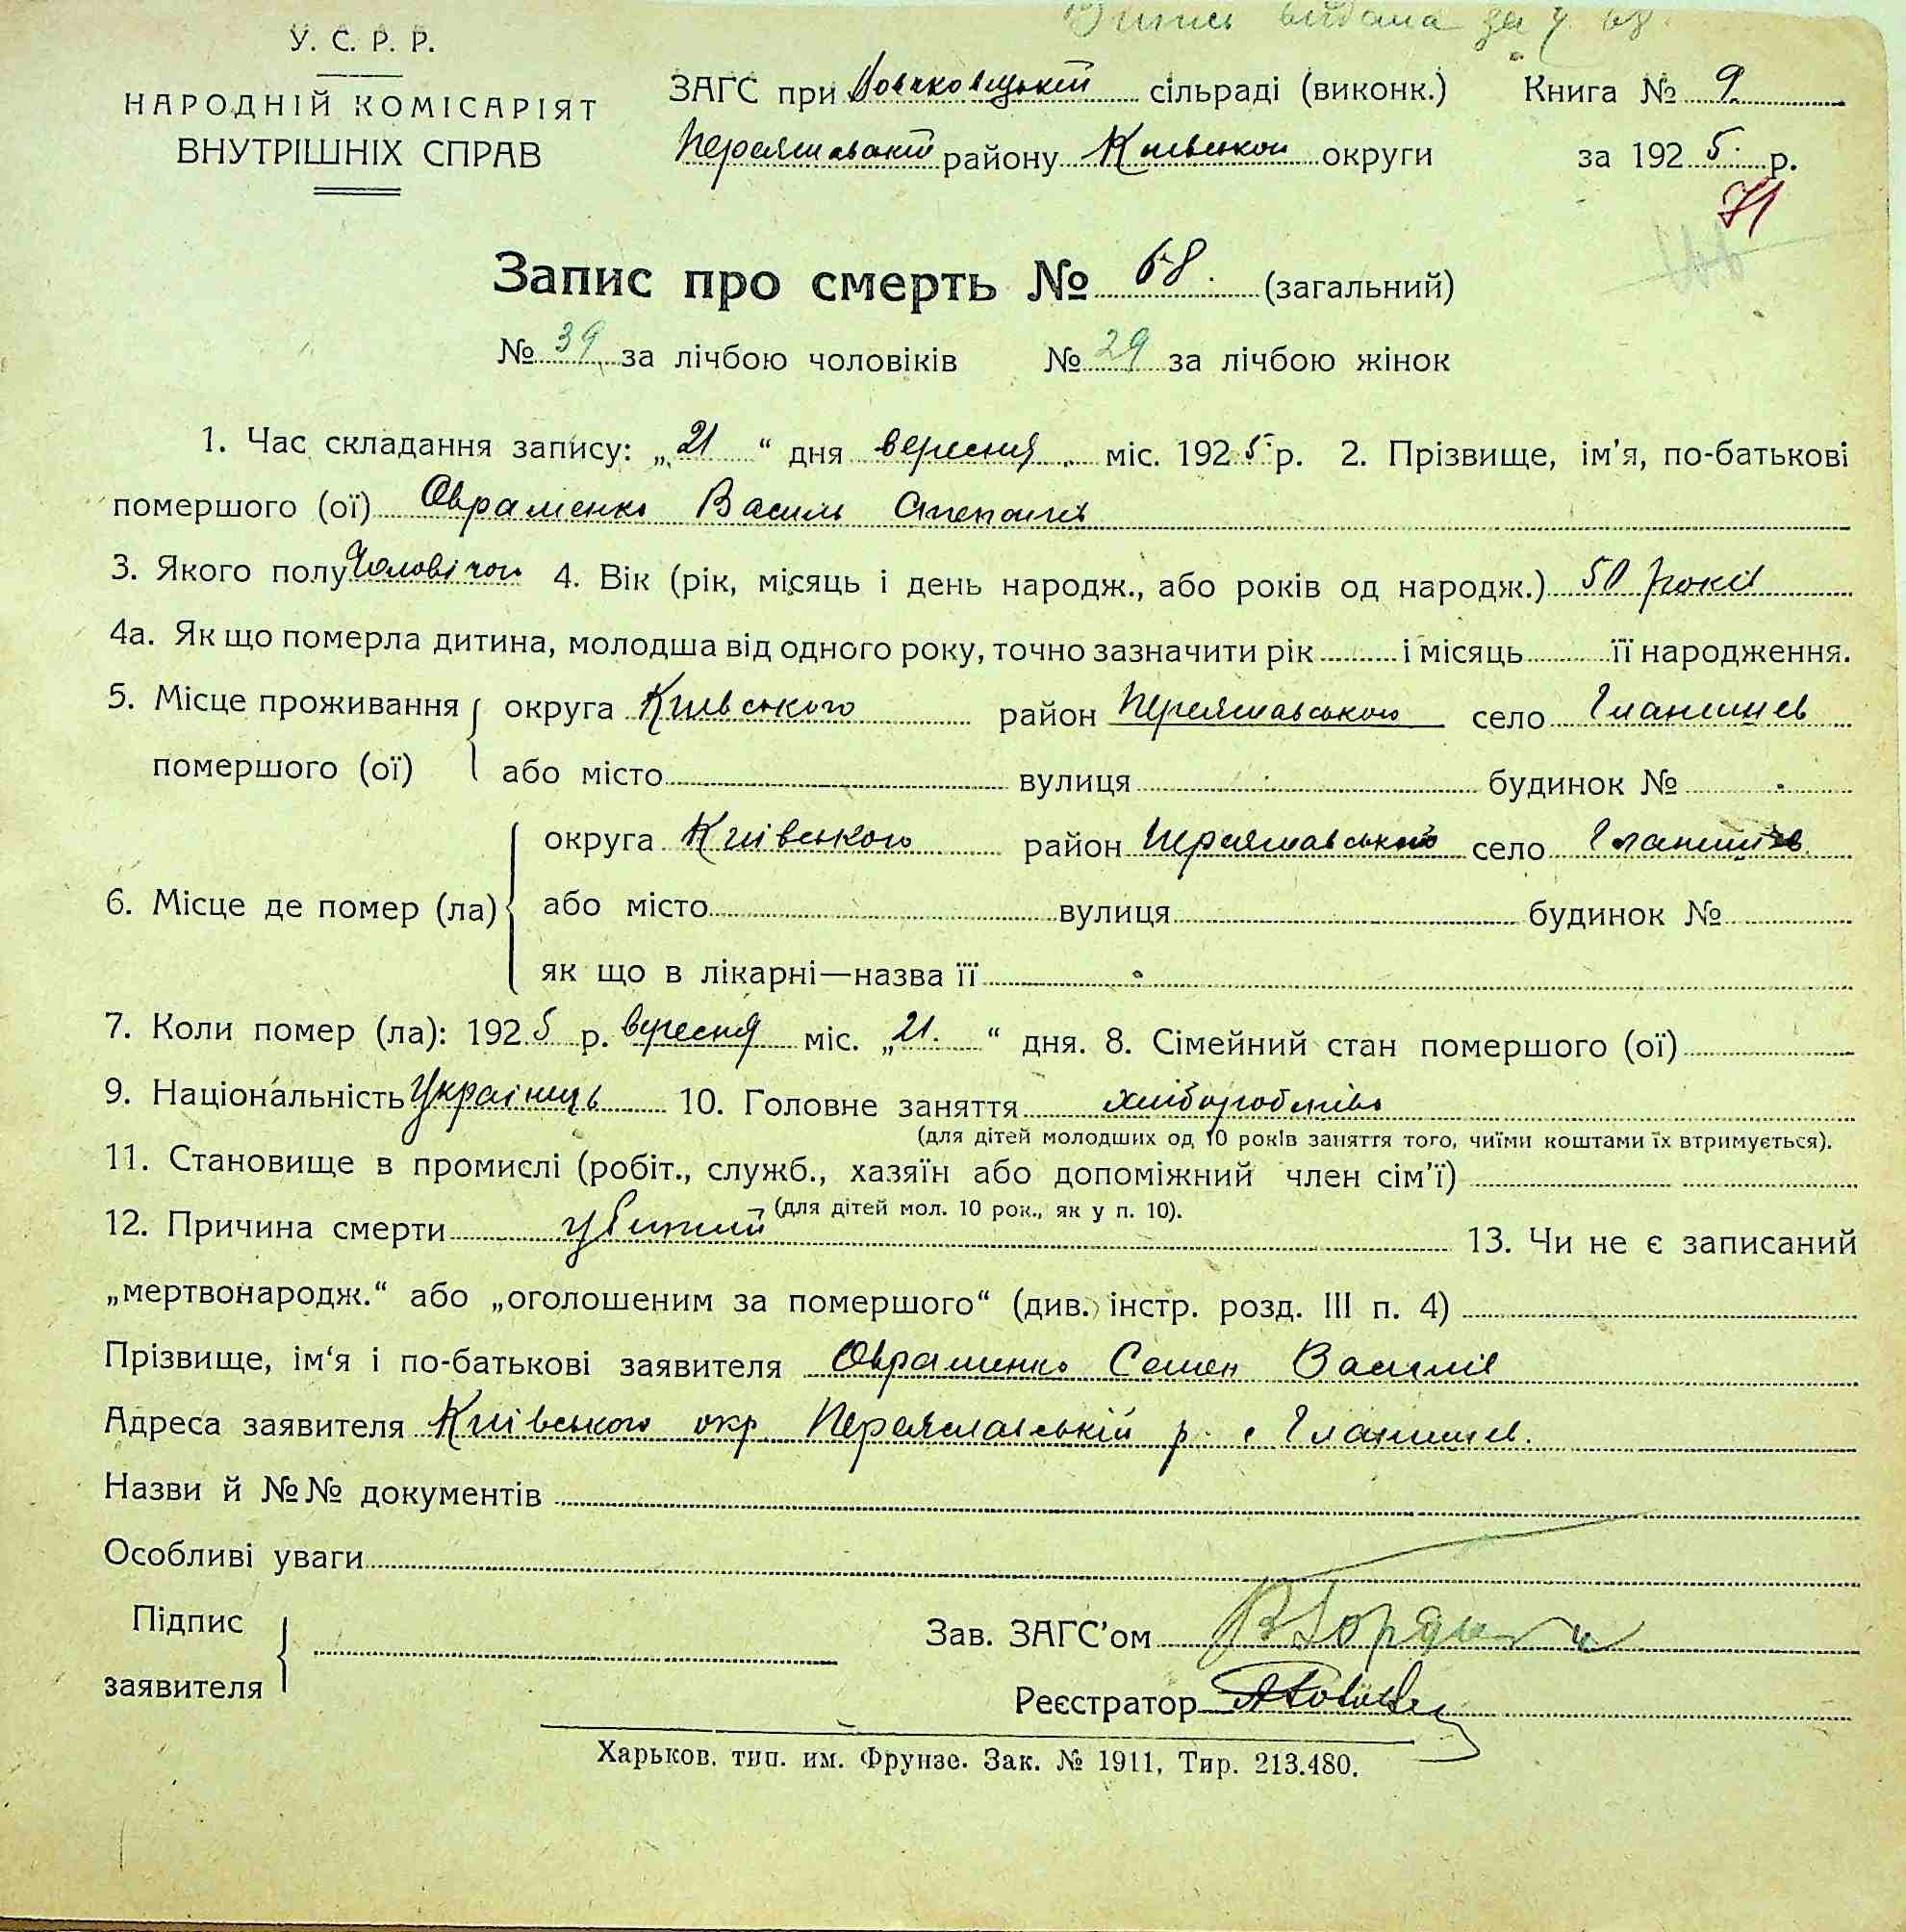 Випись видана за №
У. С. Р. Р.
НАРОДНІЙ КОМІСАРІЯТ
ВНУТРІШНІХ СПРАВ
ЗАГС при сільраді (виконк.) Книга № 9
Переяславській району Київської округи за 1925 р.
71
Запис про смерть № 68. (загальний)
№ 39 за лічбою чоловіків № 29 за лічбою жінок
1. Час складання запису: „21“ дня вересня міс. 1925 р. 2. Прізвище, ім’я, по-батькові
помершого (ої) Овраменко Василь Степанів
3. Якого полу Чоловічої 4. Вік (рік, місяць і день народж., або років од народж.) 50 років
4а. Як що померла дитина, молодша від одного року, точно зазначити рік і місяць її народження.
5. Місце проживання округа Київського район Переяславського село Гланишев
помершого (ої) або місто вулиця будинок №
округа Київського район Переяславського село Гланишев
6. Місце де помер (ла) або місто вулиця будинок №
як що в лікарні—назва її
7. Коли помер (ла): 1925 р. вересня міс. „21.“ дня. 8. Сімейний стан помершого (ої)
9. Національність Українець 10. Головне заняття хліборобство
(для дітей молодших од 10 років заняття того, чиїми коштами їх втримується).
11. Становище в промислі (робіт., служб., хазяїн або допоміжний член сім’ї)
(для дітей мол. 10 рок., як у п. 10).
12. Причина смерти убитий 13. Чи не є записаний
„мертвонародж.“ або „оголошеним за помершого“ (див. інстр. розд. III п. 4)
Прізвище, ім‘я і по-батькові заявителя Овраменко Семен Василів
Адреса заявителя Київського окр. Переяславській р. с Гланишев.
Назви й №№ документів
Особливі уваги
Підпис
заявителя
Зав. ЗАГС’ом
Реєстратор
Харьков. тип. им. Фрунзе. Зак. № 1911, Тир. 213.480.